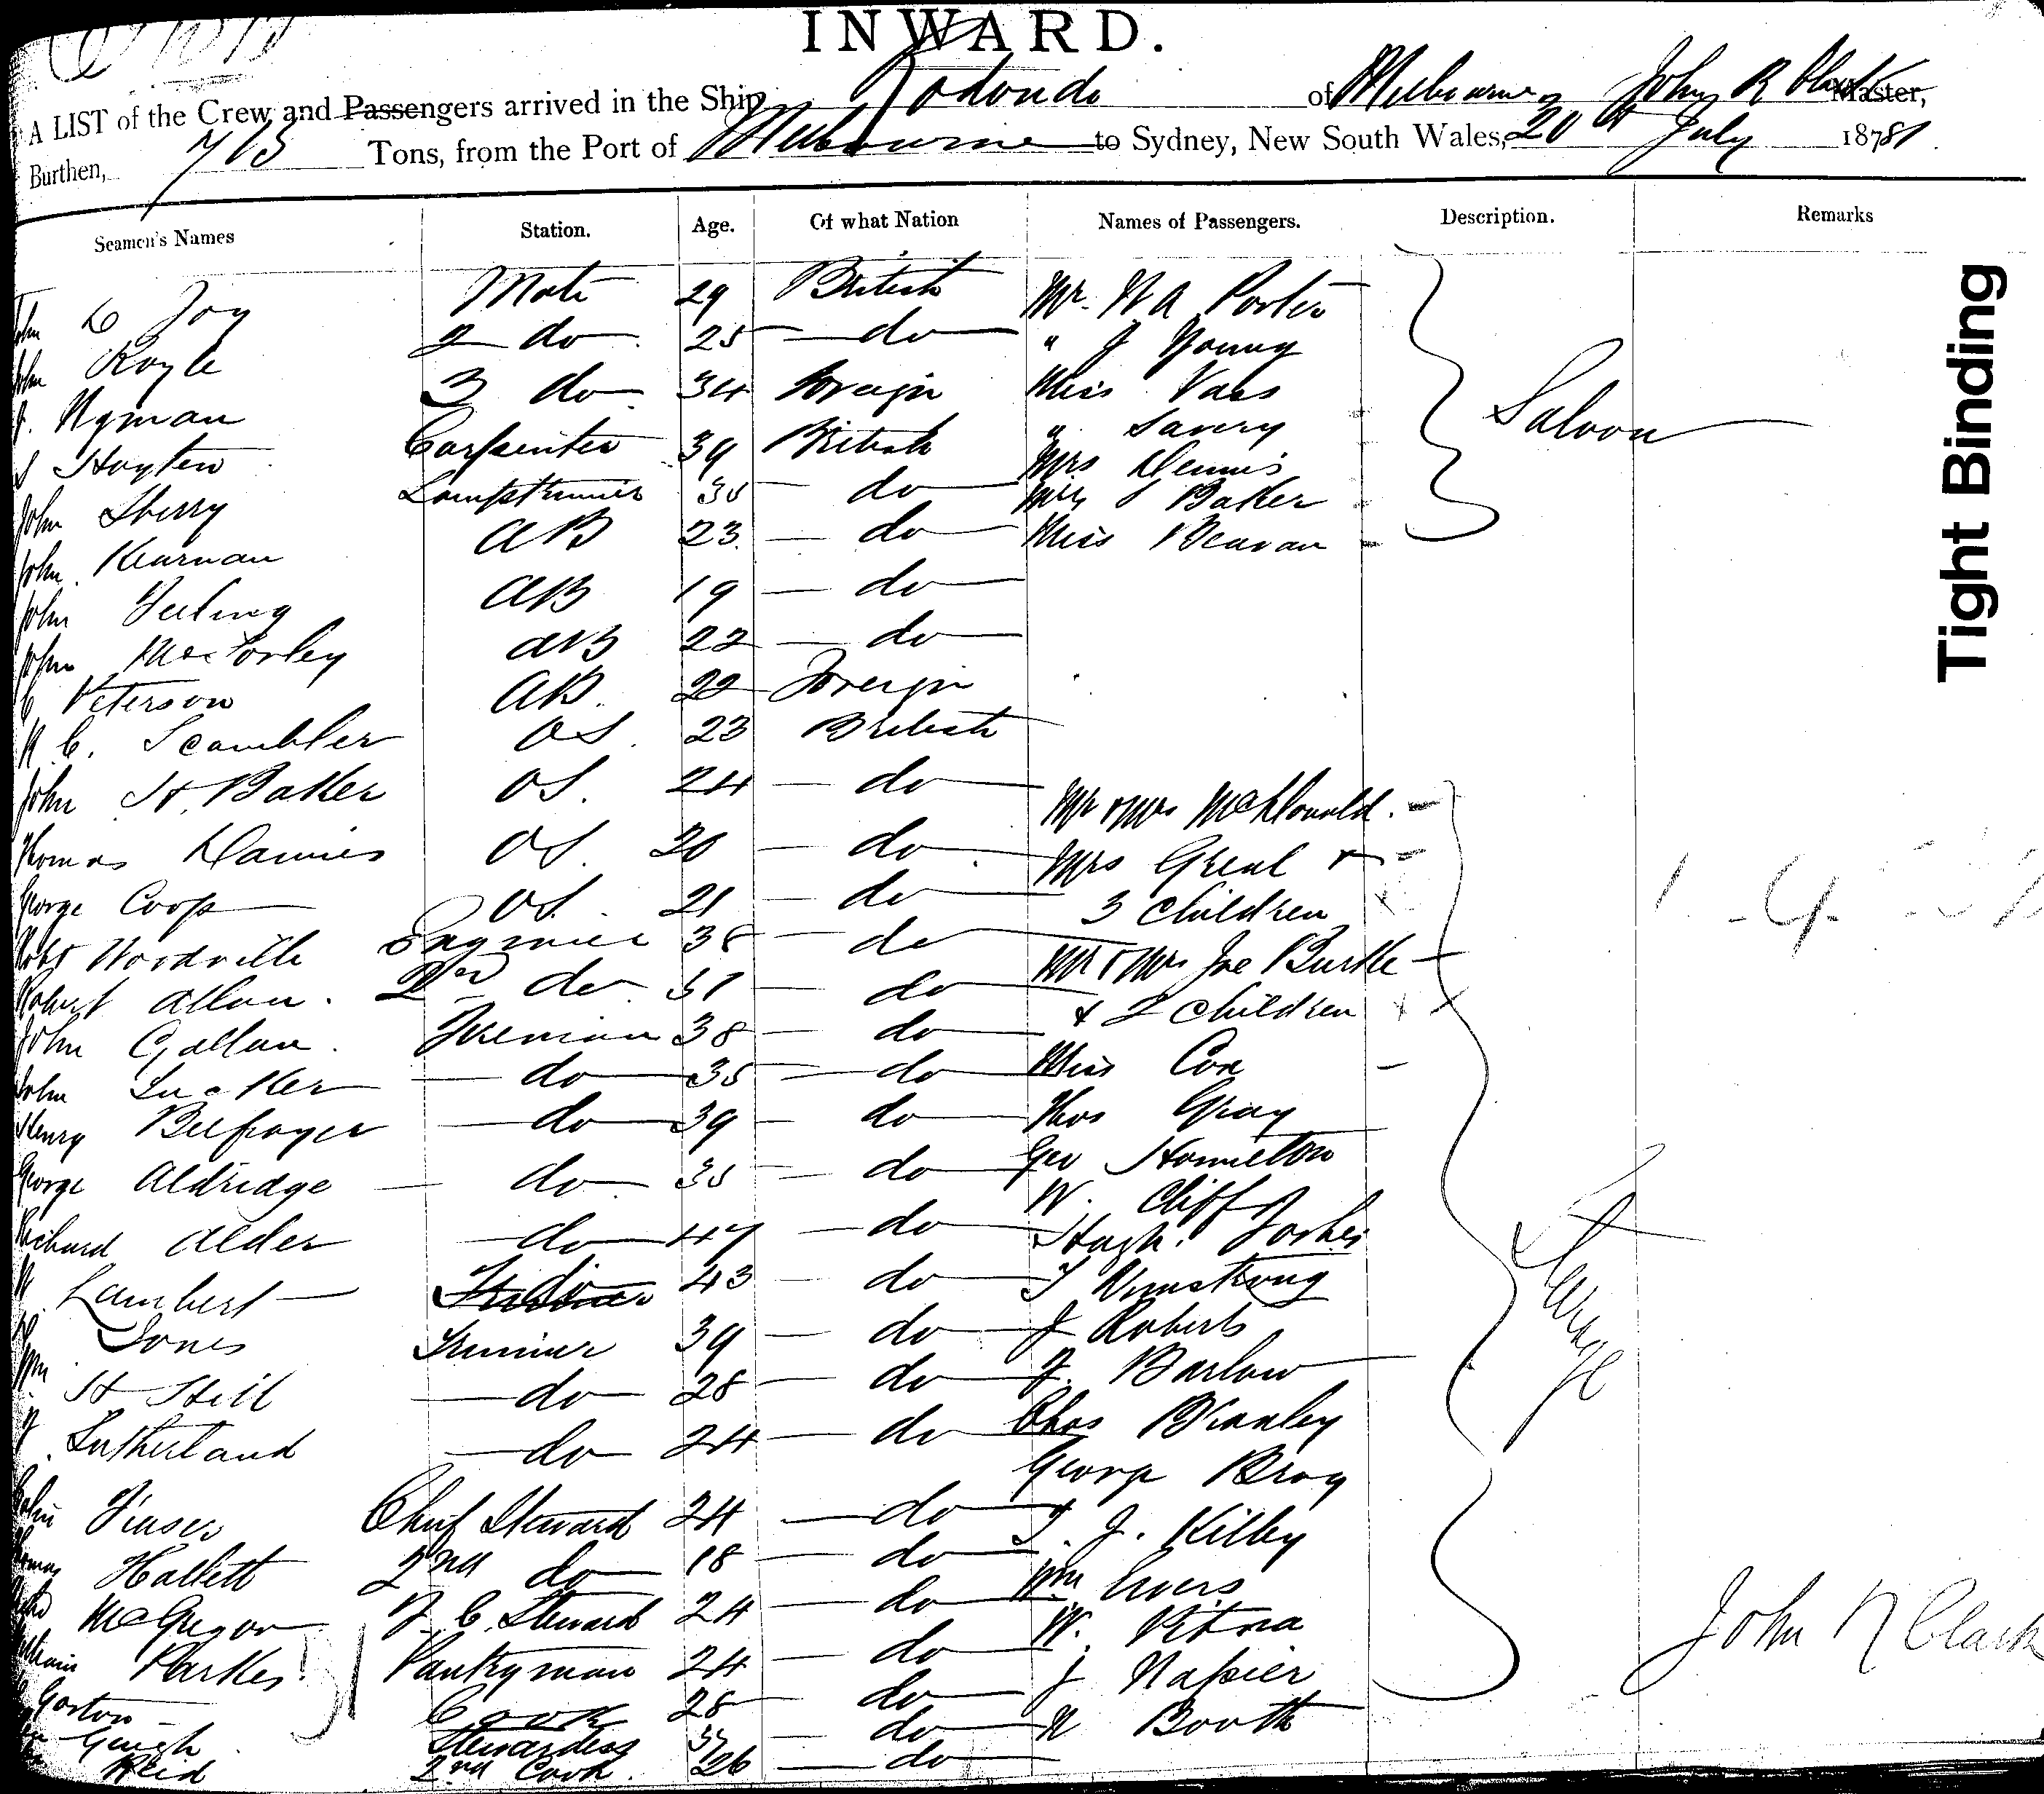 INWARD.
A LIST of the Crew and Passengers arrived in the Ship of Melbourne, John R Clark Master,
Burthen, 713 Tons, from the Port of Melbourne to Sydney, New South Wales, 20th July 1878
Seamen's Names Station. Age. Of what Nation Names of Passengers. Description. Remarks
John Joy Mate 29 British Mr. Porter
John Royle 2 do 25 do " J Young
J. Nyman 3 do 34 Foreign Miss Vass
Hoyten Carpenter 39 British " Savery
Saloon
Mrs Dennis
John Sherry Lamptrimmer 35 do Baker
John Kiernan AB 23 do Miss Beavan
John AB 19 do
John AB 22 do
C Peterson AB 22 Foreign
C. Scambler OS 23 British
John H. Baker OS. 24 do Mr & Mrs McDonald.
Thomas Dannies OS 20 do Mrs &
George Coop OS. 21 do 3 Children
Robt Woodville Engineer 38 do Mr & Mrs Joe Burke
Robert Allan. 2nd do 31 do & 2 Children
John Callan. Fireman 38 do Miss Cox
John do 35 do Thos Gray
Henry do 39 do Geo Hamilton
George Aldridge do 35 do W. Cliff
Richard Alder do 47 do Hugh Forbes
Steerage
Lambert do 43 do T Armstrong
Jones Trimmer 39 do J Roberts
Wm H Hill do 28 do J. Barlow
Sutherland do 24 do Chas
George Bray
John Chief Steward 24 do T. J. Kilby
Thomas Hallett 2nd do 18 do Wm
McGregor F. C. Steward 24 do W.
William Parkes Pantryman 24 do J Napier
Gorton Cook 28 do Booth
Gough Stewardess 37 do
Reid 2nd Cook. 26 do
31
John R Clark
Tight Binding